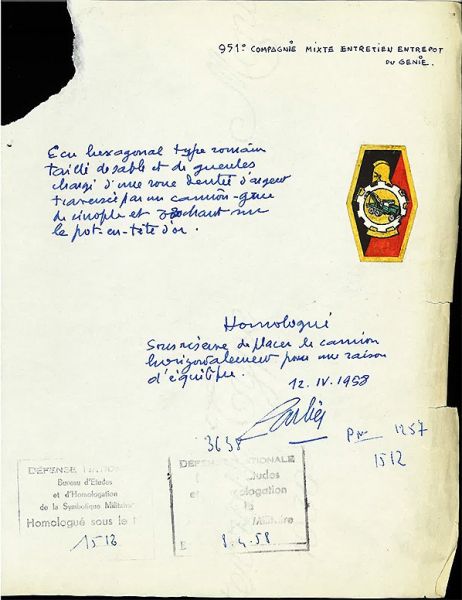 951e COMPAGNIE MIXTE ENTRETIEN ENTREPOT
DU GENIE.
Ecu hexagonal type romain
taillé de sable et de gueules
chargé d'une roue dentée d'argent
traversée par un camion-grue
de sinople et brochant sur
le pot-en-tête d'or.
Homologué
Sous réserve de placer le camion
horizontalement pour une raison
d'équilibre.
12.IV.1958
3638
1257
1512
DÉFENSE NATION
Bureau d'Etudes
et d'Homologation
de la Symbolique Militaire
Homologué sous le
1512
DÉFENSE NATIONALE
Etudes
et Homologation
la
Militaire
8.4.58